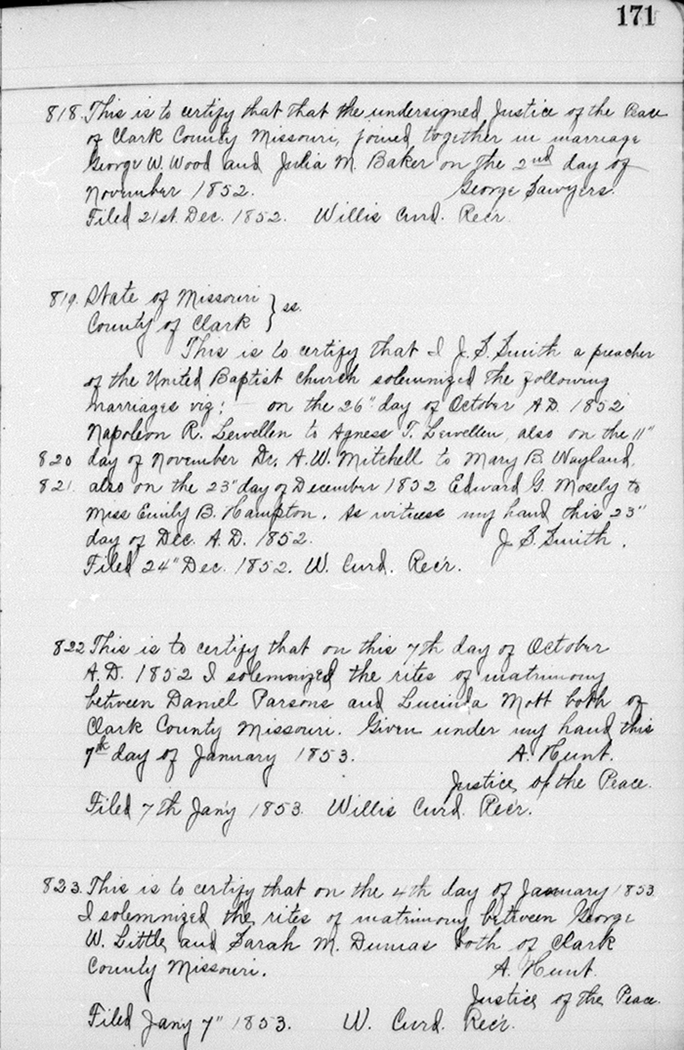 171
818. This is to certify that that the undersigned Justice of the Peace
of Clark County Missouri, joined together in marriage
George W. Wood and Julia M. Baker on the 2nd day of
November 1852. George Sawyers.
Filed 21st. Dec. 1852. Willis Curd. Recr
819. State of Missouri } ss.
County of Clark
This is to certify that I J. S. Smith a preacher
of the United Baptist Church solemnized the following
marriages viz: — on the 26" day of October A.D. 1852
Napoleon R. Lewellen to Agness T. Lewellen, also on the 11"
820 day of November Dr. A. W. Mitchell to Mary B. Wayland,
821. also on the 23" day of December 1852 Edward G. Mosely to
Miss Emily B. Hampton. As witness my hand this 23"
day of Dec. A.D. 1852. J. S. Smith.
Filed 24" Dec. 1852. W. Curd. Rec'r.
822 This is to certify that on this 7th day of October
A.D. 1852 I solemnized the rites of matrimony
between Daniel Parsons and Lucinda Mott both of
Clark County Missouri. Given under my hand this
7th day of January 1853. A. Hunt.
Justice of the Peace.
Filed 7th Jan'y 1853. Willis Curd. Rec'r.
823. This is to certify that on the 4th day of January 1853
I solemnized the rites of matrimony between George
W. Little and Sarah M. Dumas both of Clark
County Missouri. A. Hunt.
Justice of the Peace.
Filed Jany 7" 1853. W. Curd. Rec'r.